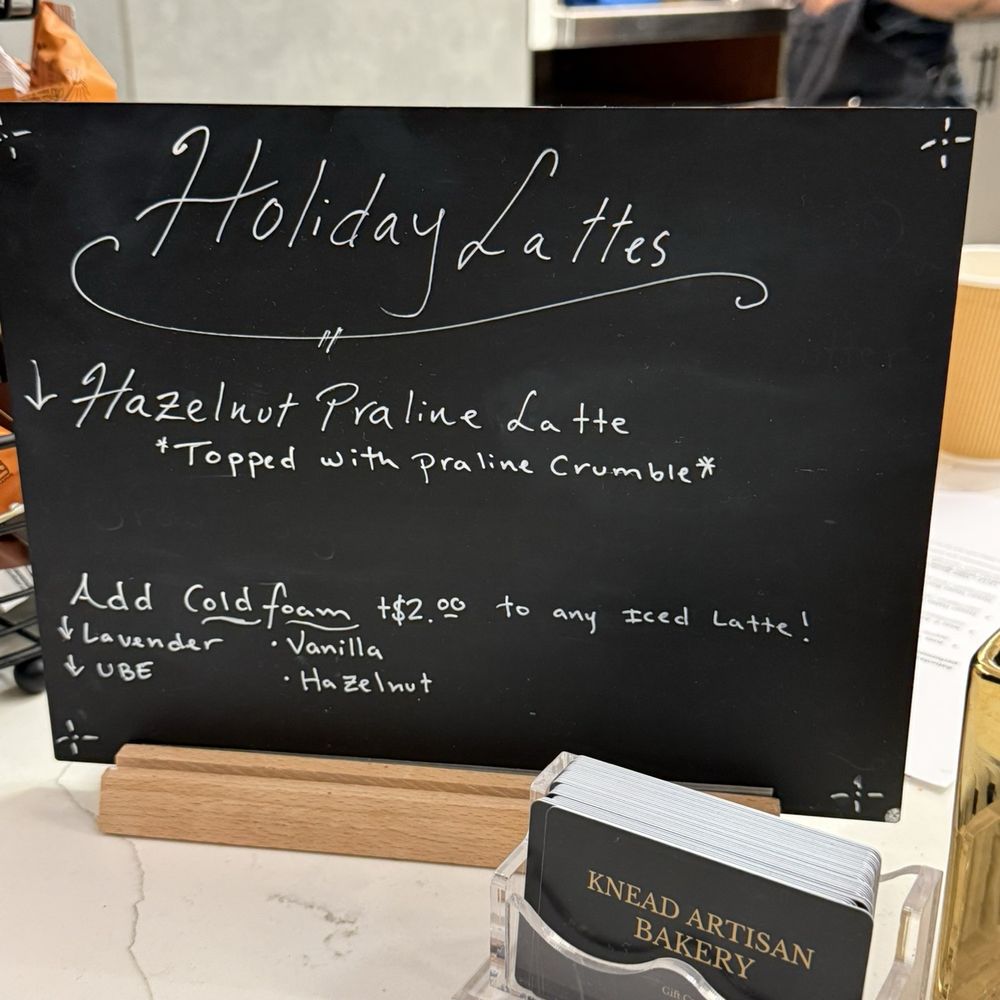 Holiday Lattes
↓ Hazelnut Praline Latte
*Topped with praline Crumble*
Add Cold foam +$2.00 to any Iced Latte!
↓ Lavender · Vanilla
↓ UBE · Hazelnut
KNEAD ARTISAN
BAKERY